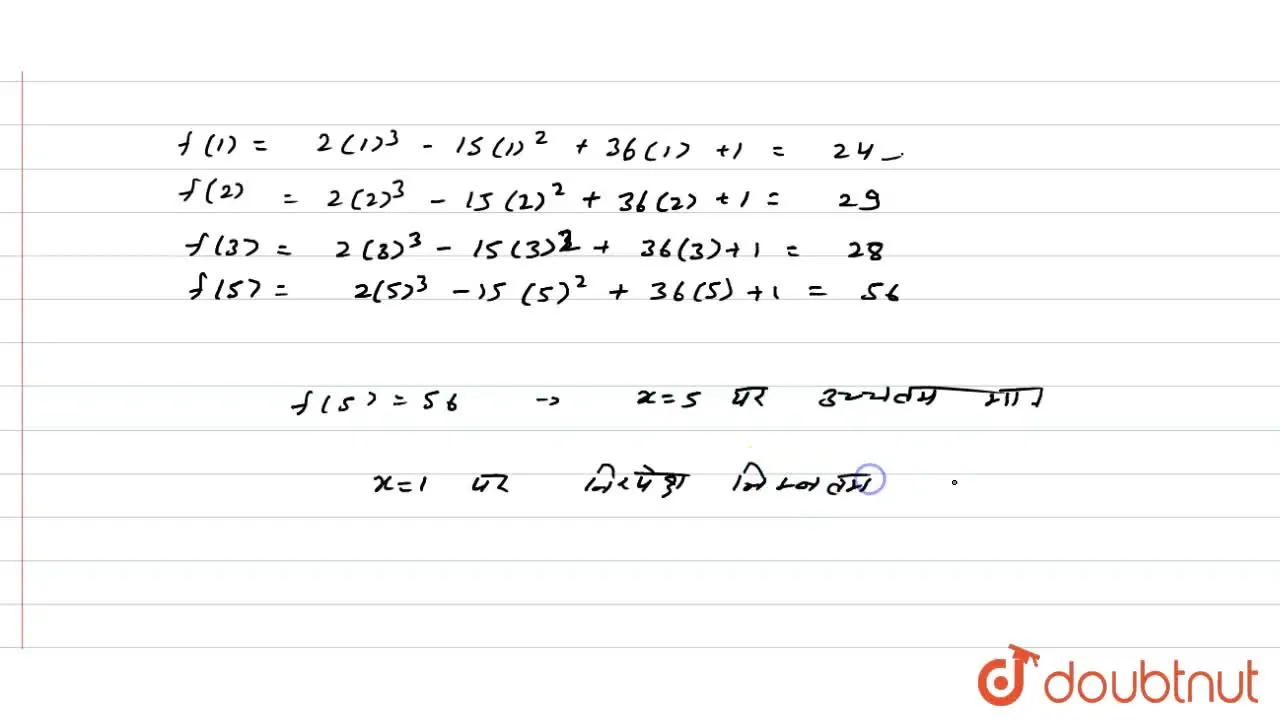 f(1) = 2(1)³ - 15(1)² + 36(1) +1 = 24
f(2) = 2(2)³ - 15(2)² + 36(2) +1 = 29
f(3) = 2(3)³ - 15(3)² + 36(3)+1 = 28
f(5) = 2(5)³ - 15(5)² + 36(5) +1 = 56
f(5) = 56 → x=5 पर उच्चतम मान
x=1 पर निरपेक्ष निम्नतम
doubtnut